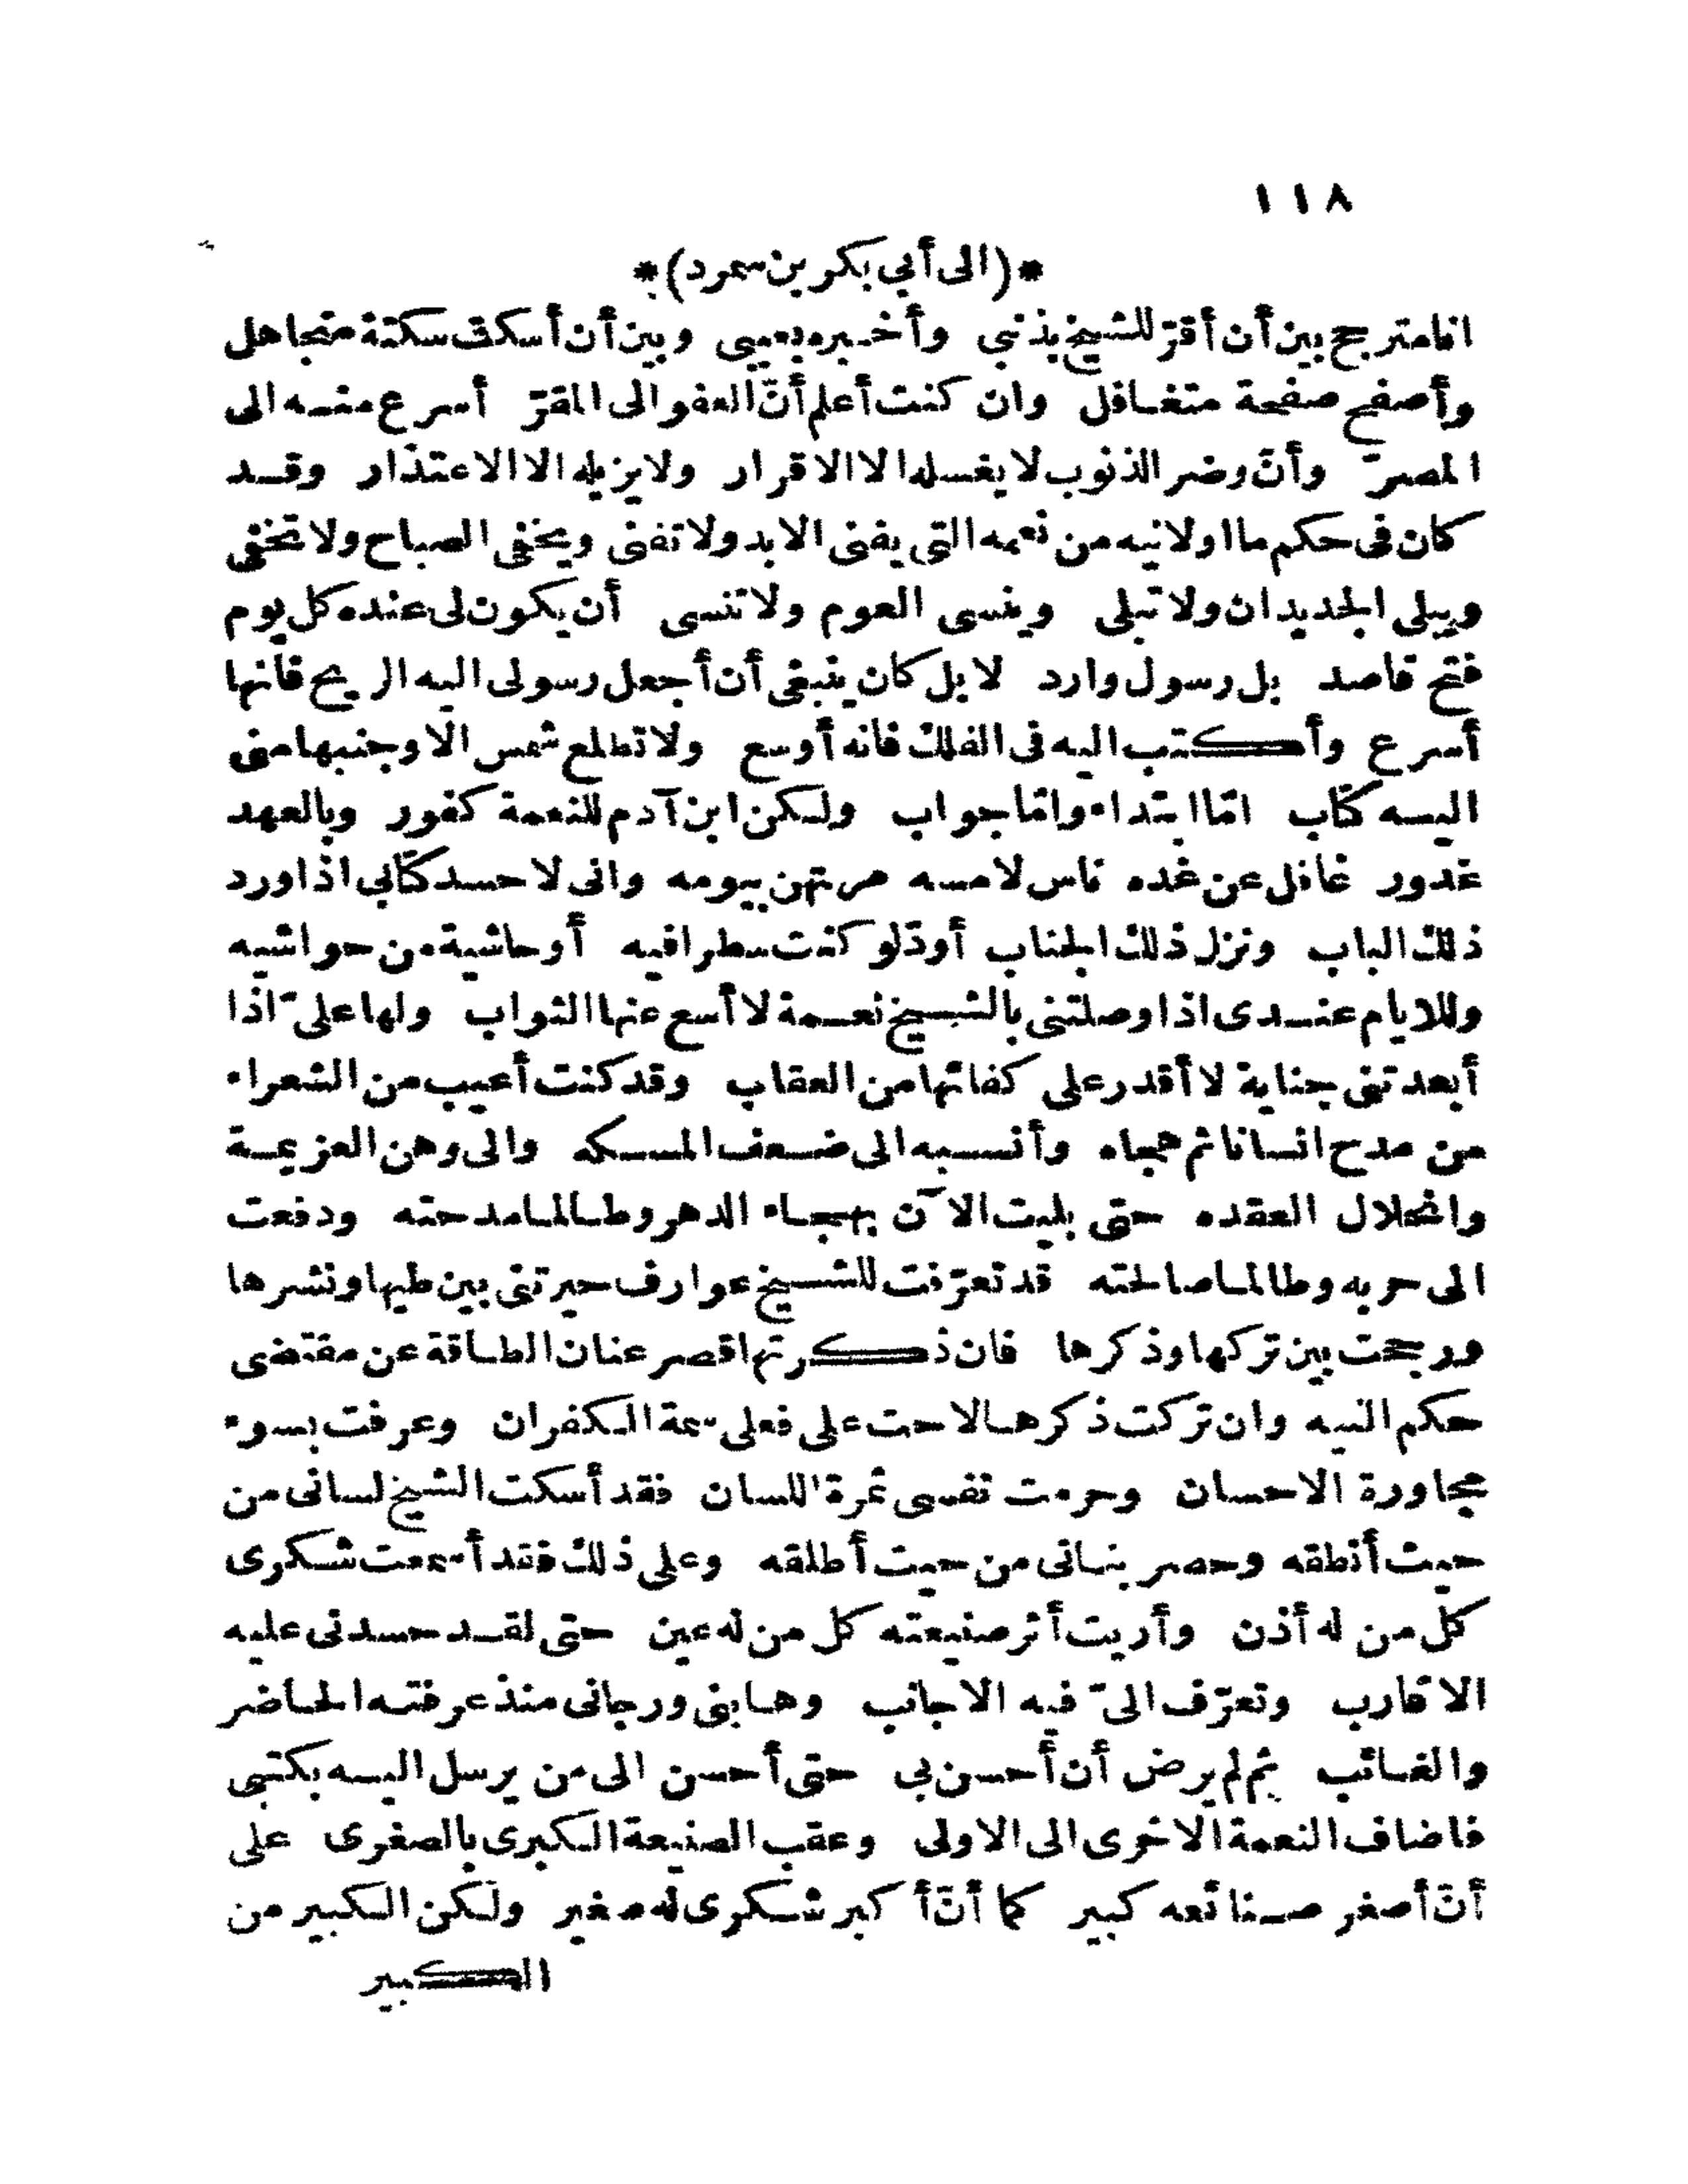 ١١٨
*(الى أبي بكر بن سمرد)*
انا مترجح بين أن أقرّ للشيخ بذنبي وأخبره بعيبي وبين أن أسكت سكتة متجاهل
وأصفح صفحة متغافل وان كنت أعلم أنّ العفو الى المقرّ أسرع منه الى
المصرّ وأنّ وضر الذنوب لا يغسله الا الاقرار ولا يزيله الا الاعتذار وقد
كان فى حكم ما اولانيه من نعمه التي يفنى الابد ولا تفنى ويخفى الصباح ولا تخفى
ويبلى الجديدان ولا تبلى وينسى العوم ولا تنسى أن يكون لى عنده كل يوم
فتح قاصد بل رسول وارد لا بل كان ينبغى أن أجعل رسولى اليه الريح فانها
أسرع وأكتب اليه فى الفلك فانه أوسع ولا تطلع شمس الا وجنبها منى
اليه كتاب امّا ابتداء وامّا جواب ولكن ابن آدم للنعمة كفور وبالعهد
غدور غافل عن غده ناس لامسه مرتهن بيومه وانى لاحسد كتابى اذا ورد
ذلك الباب ونزل ذلك الجناب أودّ لو كنت سطرا فيه أو حاشية من حواشيه
وللايام عندى اذا وصلتنى بالشيخ نعمة لا أسع عنها الثواب ولها علىّ اذا
أبعدتنى جناية لا أقدر على كفائها من العقاب وقد كنت أعيب من الشعراء
من مدح انسانا ثم هجاه وأنسبه الى ضعف المسكه والى وهن العزيمة
وانحلال العقده حتى بليت الآن بهجاء الدهر وطالما مدحته ودفعت
الى حربه وطالما صالحته قد تعرّفت للشيخ عوارف حيرتنى بين طيها ونشرها
ورجحت بين تركها وذكرها فان ذكرتها قصر عنان الطاقة عن مقتضى
حكم النيه وان تركت ذكرها لاحت على فعلى سمة الكفران وعرفت بسوء
مجاورة الاحسان وحرمت نفسى ثمرة اللسان فقد أسكت الشيخ لسانى من
حيث أنطقه وحصر بنانى من حيث أطلقه وعلى ذلك فقد أسمعت شكرى
كل من له أذن وأريت أثر صنيعته كل من له عين حتى لقد حسدنى عليه
الاقارب وتعرّف الىّ فيه الاجانب وهابنى ورجانى منذ عرفته الحاضر
والغائب ثم لم يرض أن أحسن بي حتى أحسن الى من يرسل اليه بكتبى
فاضاف النعمة الاخرى الى الاولى وعقب الصنيعة الكبرى بالصغرى على
أنّ أصغر صنائعه كبير كما أنّ أكبر شكرى له صغير ولكن الكبير من
الكبير